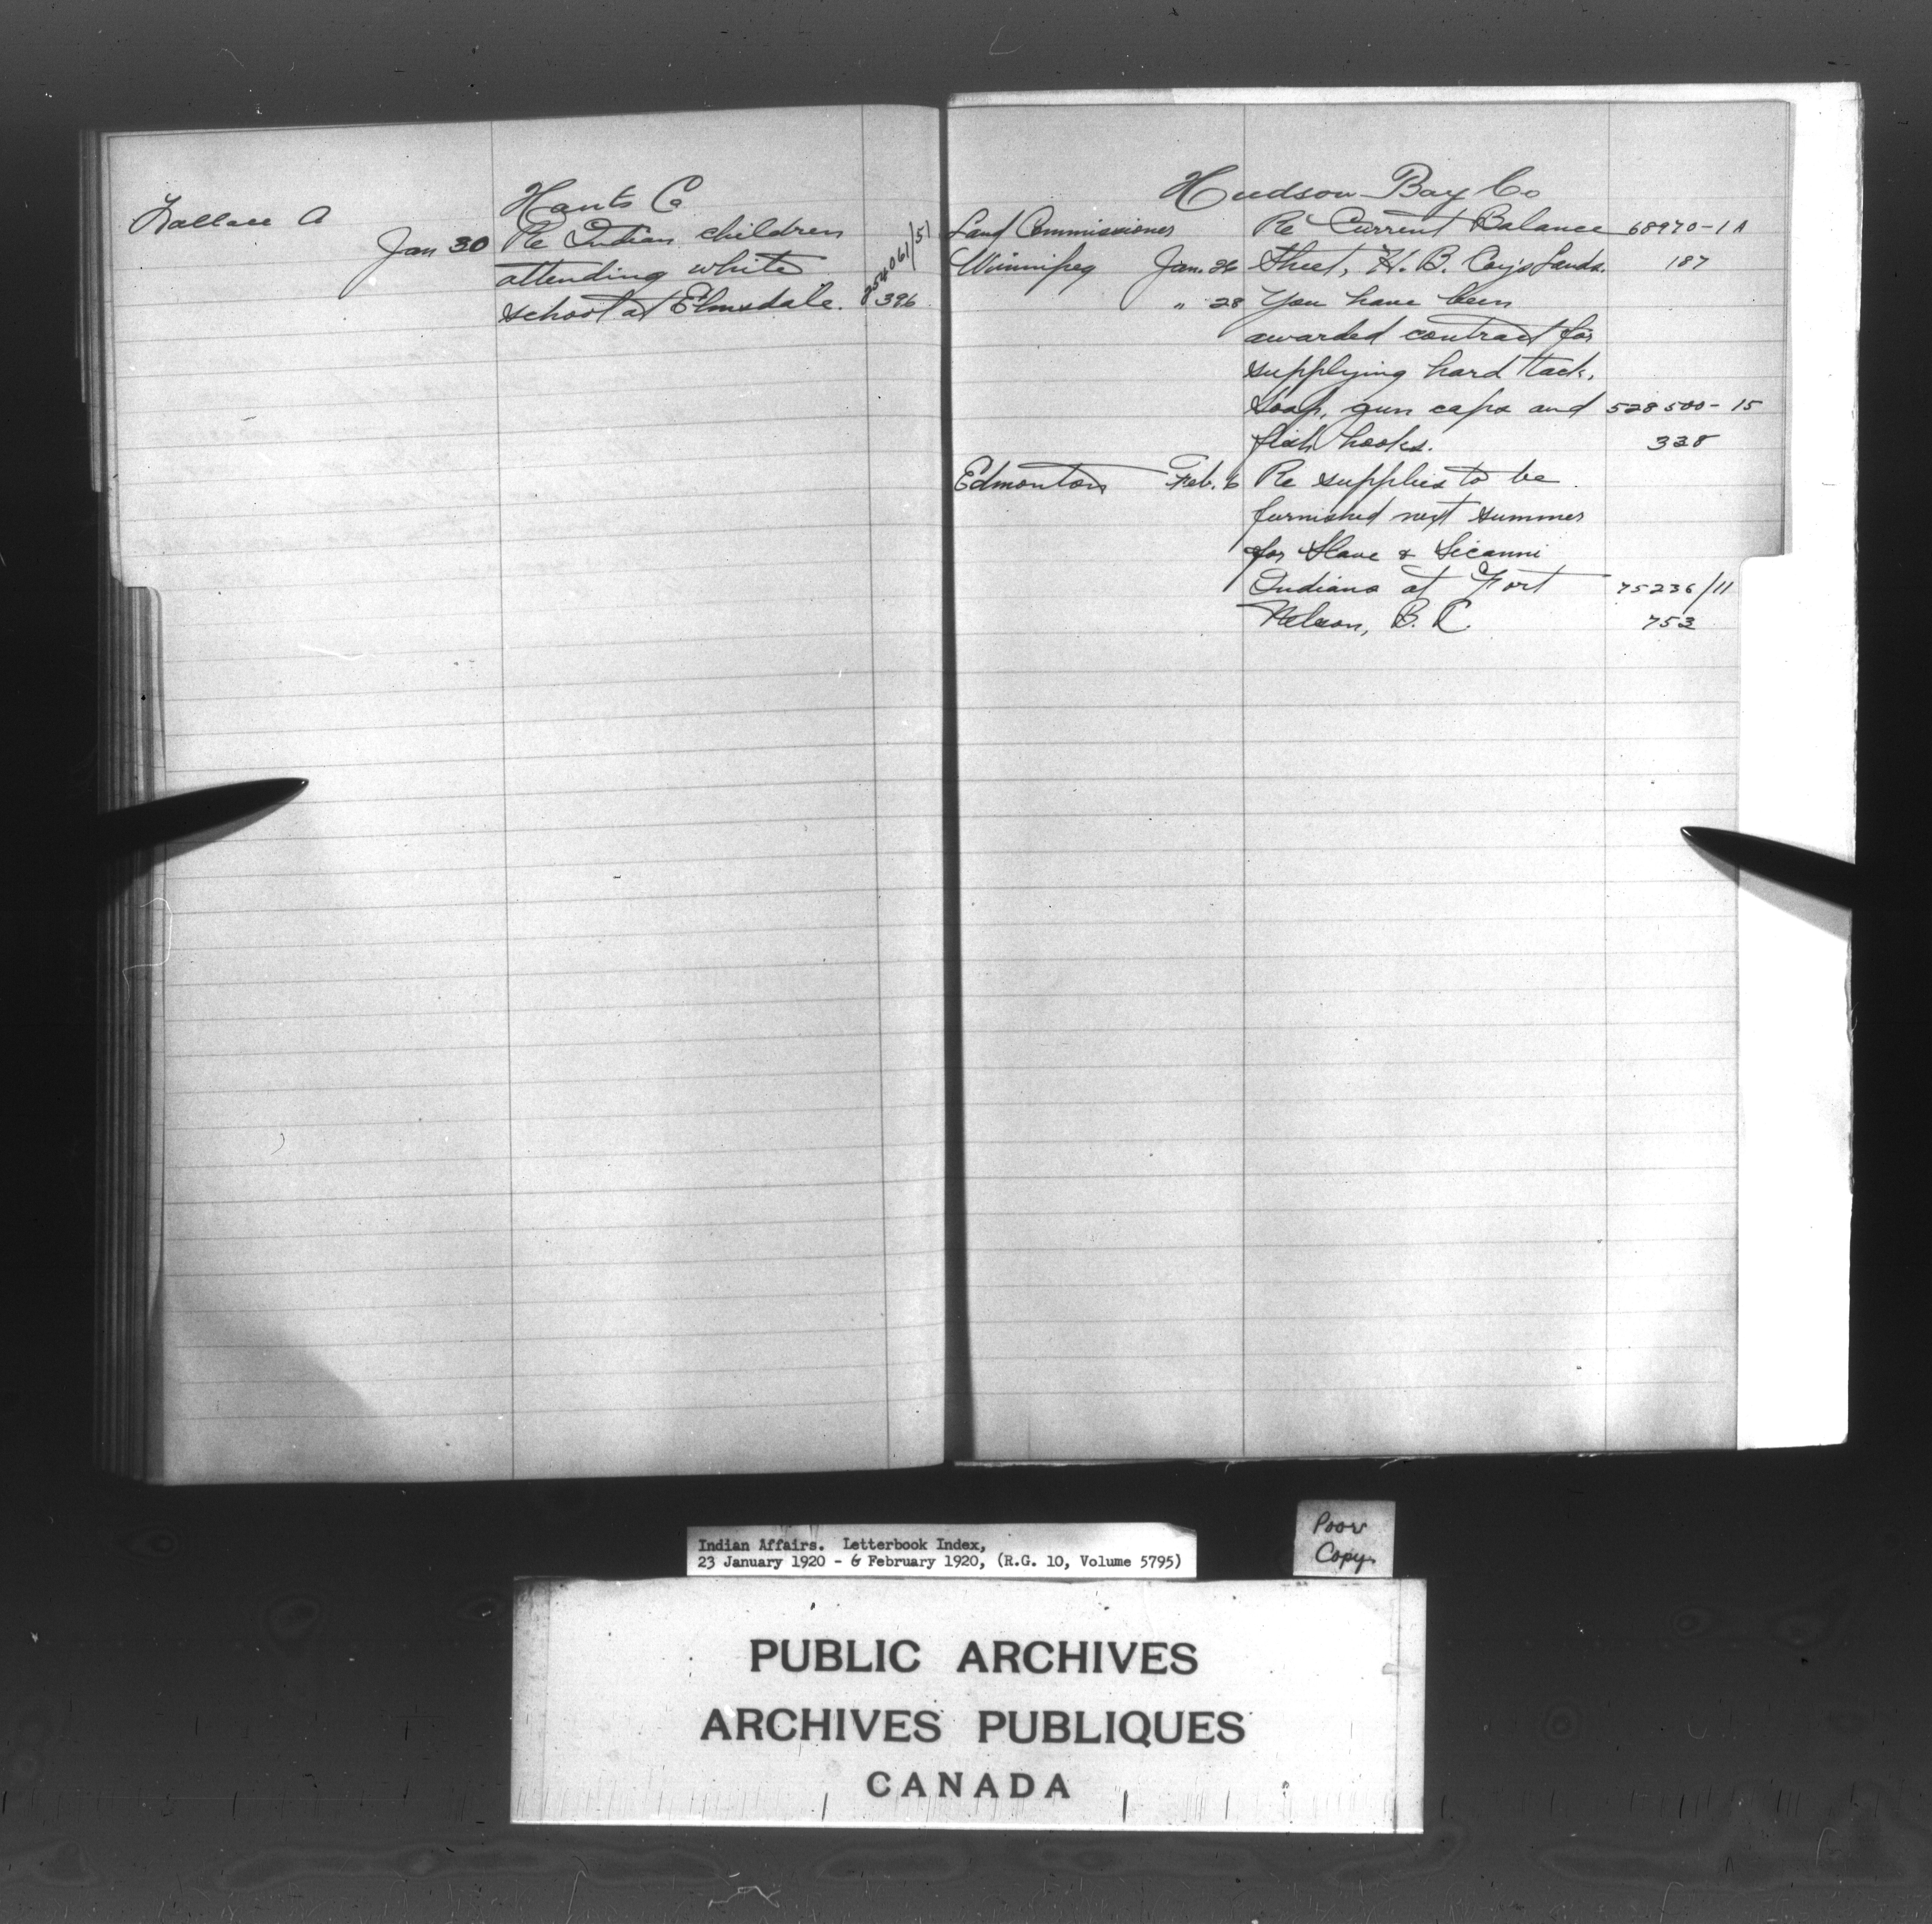 Hants Co
Wallace A
Jan 30 Re Indian children 854061/51
attending white
school at Elmsdale. 396
Hudson Bay Co
Land Commissioner Re Current Balance 68970-1A
Winnipeg Jan. 26 Sheet, H. B. Coy's Lands. 187
" 28 You have been
awarded contract for
supplying hard tack,
soap, gun caps and 528500-15
fish hooks. 338
Edmonton Feb. 6 Re supplies to be
furnished next summer
for Slave & Sicanni
Indians at Fort 75236/11
Nelson, B. C. 753
Poor
Copy.
Indian Affairs. Letterbook Index,
23 January 1920 - 6 February 1920, (R.G. 10, Volume 5795)
PUBLIC ARCHIVES
ARCHIVES PUBLIQUES
CANADA